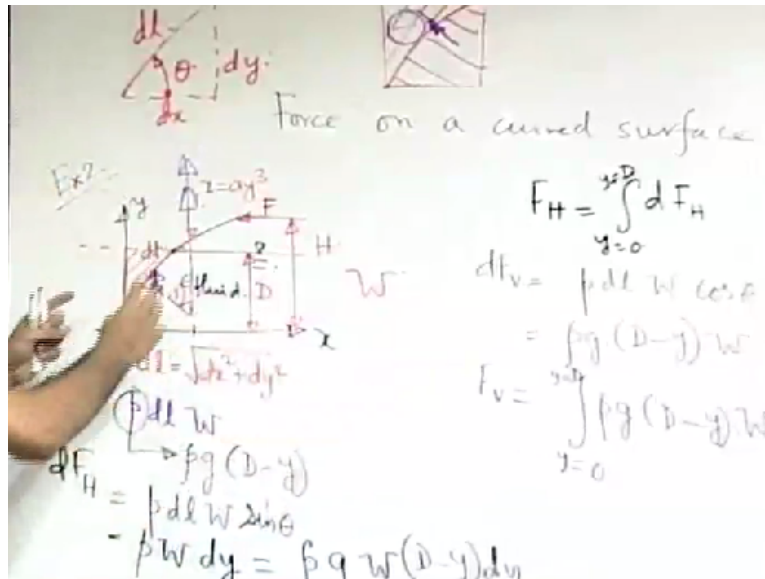 dl
θ
dy
dx
Force on a curved surface
Ex 2
y
x = ay³
F
dl
H
fluid
D
x
W
dl = √dx² + dy²
p dl W
ρg (D-y)
dF_H = p dl W sinθ
= p W dy = ρg W (D-y) dy
F_H = ∫_{y=0}^{y=D} dF_H
dF_V = p dl W cosθ
= ρg (D-y) W
F_V = ∫_{y=0}^{y=D} ρg (D-y) W